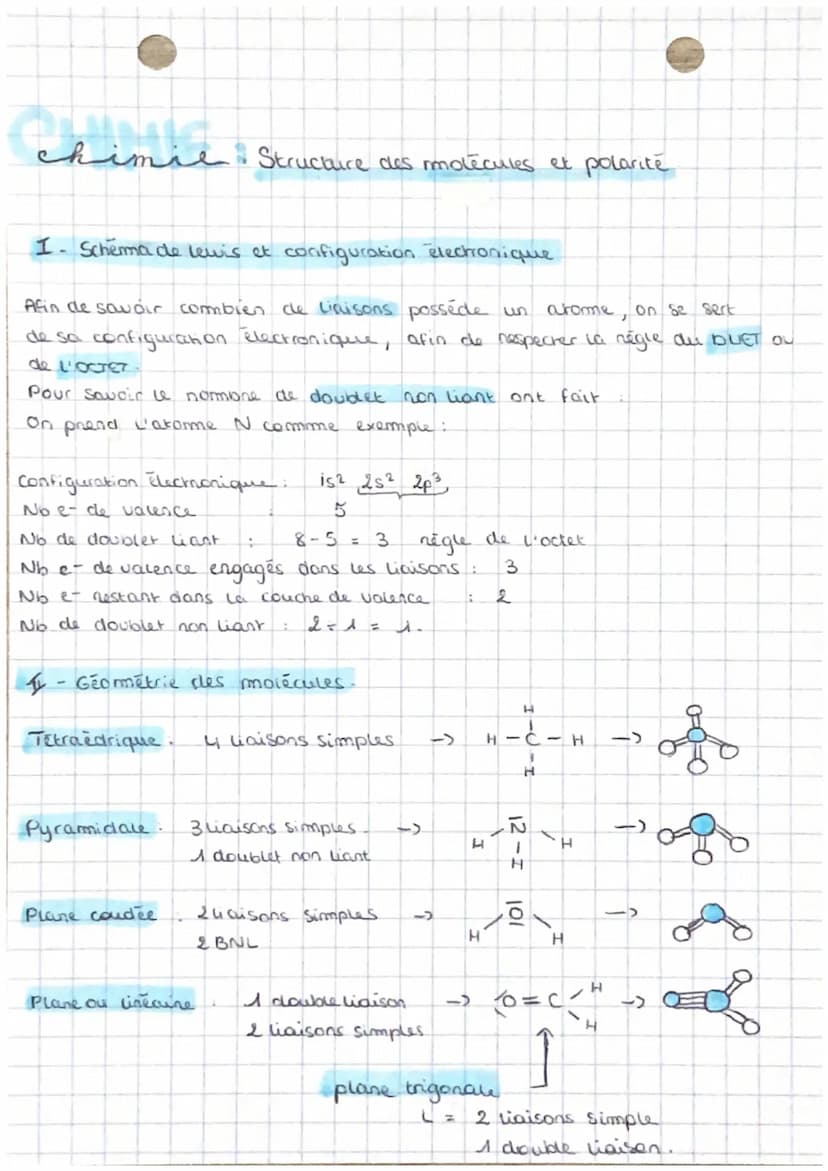 CHIMIE
chimie : Structure des molécules et polarité
I - Schéma de lewis et configuration électronique
Afin de savoir combien de liaisons posséde un atome, on se sert
de sa configuration électronique, afin de respecter la régle du DUET ou
de L'OCTET.
Pour savoir le nombre de doublet non liant ont fait :
On prend l'atome N comme exemple :
Configuration électronique : is² 2s² 2p³
Nb e- de valence : 5
Nb de doublet liant : 8-5 = 3 régle de l'octet
Nb e- de valence engagés dans les liaisons : 3
Nb e- restant dans la couche de valence : 2
Nb de doublet non liant : 2÷1 = 1.
II - Géométrie des molécules.
Tétraédrique. 4 liaisons simples -> H - C - H ->
H
H
Pyramidale : 3 liaisons simples. -> N ->
1 doublet non liant
H H
H
Plane coudée : 2 liaisons simples -> O ->
2 BNL
H H
Plane ou linéaire. 1 double liaison -> O = C H ->
2 liaisons simples
H
plane trigonale
L = 2 liaisons simple
1 double liaison.